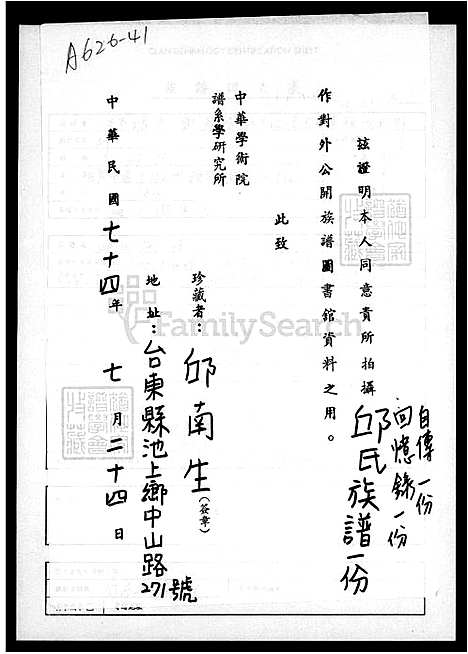 A626-41
茲證明本人同意貴所拍攝邱氏族譜一份
回憶錄一份
自傳一份
作對外公開族譜圖書館資料之用。
此致
中華學術院
譜系學研究所
珍藏者：邱南生（簽章）
地址：台東縣池上鄉中山路271號
中華民國七十四年七月二十四日
FamilySearch